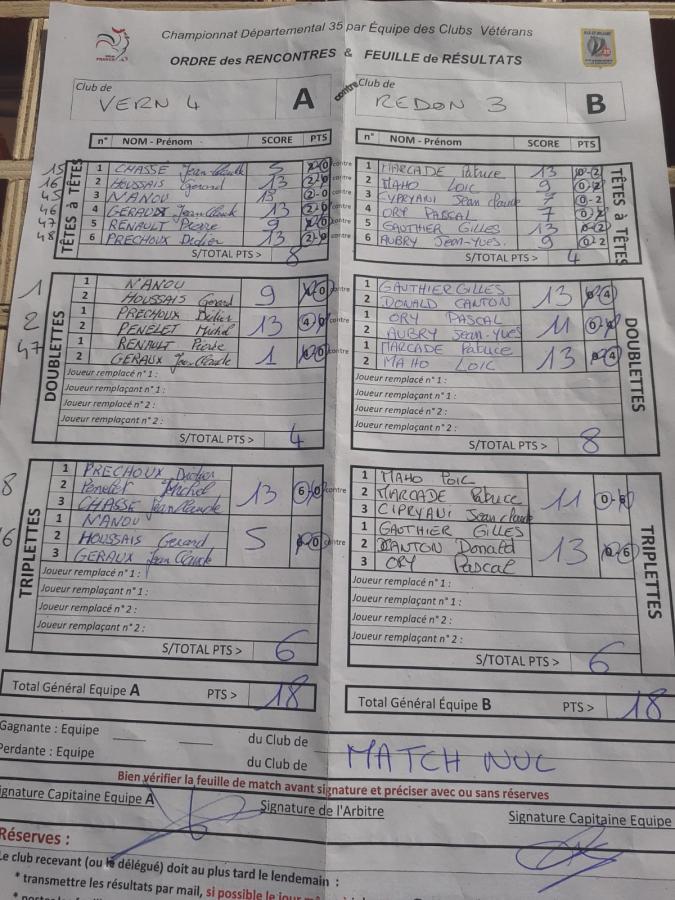 Championnat Départemental 35 par Équipe des Clubs Vétérans
ORDRE des RENCONTRES & FEUILLE de RÉSULTATS
Club de
VERN 4
A
contre
Club de
REDON 3
B
n° NOM - Prénom SCORE PTS
TÊTES à TÊTES
15 1 CHASSÉ Jean Claude 5
16 2 HOUSSAIS Gérard 13 2-0
45 3 N'ANOU 13 2-0
46 4 GERAUX Jean Claude 13 2-0
47 5 RENAULT Pierre 9
48 6 PRECHOUX Didier 13 2-0
S/TOTAL PTS > 8
n° NOM - Prénom SCORE PTS
1 MARCADE Patrice 13 0-2
2 MAHO LOIC 9 0-2
3 CYPRYANI Jean Claude 7 0-2
4 ORY PASCAL 7 0-2
5 GAUTHIER GILLES 13 0-2
6 AUBRY JEAN-YVES. 9 0-2
S/TOTAL PTS > 4
TÊTES à TÊTES
DOUBLETTES
1 1 N'ANOU
2 HOUSSAIS Gerard 9 4-0
2 1 PRECHOUX Didier
2 PENELET Michel 13 4-0
47 1 RENAULT Pierre
2 GERAUX Jean Claude 1 4-0
Joueur remplacé n° 1 :
Joueur remplaçant n° 1 :
Joueur remplacé n° 2 :
Joueur remplaçant n° 2 :
S/TOTAL PTS > 4
1 GAUTHIER GILLES
2 DONALD CANTON 13 0-4
1 ORY PASCAL
2 AUBRY Jean-Yves 11 0-4
1 MARCADE Patrice
2 MAHO LOIC 13 0-4
Joueur remplacé n° 1 :
Joueur remplaçant n°1 :
Joueur remplacé n° 2 :
Joueur remplaçant n°2 :
S/TOTAL PTS > 8
DOUBLETTES
TRIPLETTES
8 1 PRECHOUX Didier
2 Penelet Michel 13 6-0
3 CHASSE Jean Claude
16 1 N'ANOU
2 HOUSSAIS Gerard 5 6-0
3 GERAUX Jean Claude
Joueur remplacé n° 1 :
Joueur remplaçant n° 1 :
Joueur remplacé n° 2 :
Joueur remplaçant n° 2 :
S/TOTAL PTS > 6
1 MAHO Loic
2 MARCADE Patrice 11 0-6
3 CIPRYANI Jean claude
1 GAUTHIER GILLES
2 CANTON Donald 13 0-6
3 ORY Pascal
Joueur remplacé n° 1 :
Joueur remplaçant n°1 :
Joueur remplacé n°2 :
Joueur remplaçant n°2 :
S/TOTAL PTS > 6
TRIPLETTES
Total Général Equipe A PTS > 18
Total Général Équipe B PTS > 18
Gagnante : Equipe du Club de
Perdante : Equipe du Club de
MATCH NUL
Bien vérifier la feuille de match avant signature et préciser avec ou sans réserves
Signature Capitaine Equipe A
Signature de l'Arbitre
Signature Capitaine Equipe
Réserves :
Le club recevant (ou le délégué) doit au plus tard le lendemain :
* transmettre les résultats par mail, si possible le jour